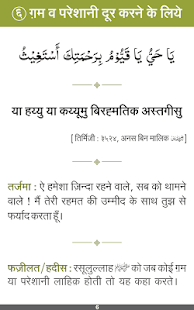 ६ ग़म व परेशानी दूर करने के लिये
يَا حَيُّ يَا قَيُّوْمُ بِرَحْمَتِكَ أَسْتَغِيْثُ
या हय्यु या कय्यूमु बिरहमतिक अस्तगीसु
[ तिर्मिज़ी : ३५२४, अनस बिन मालिक ]
तर्जमा : ऐ हमेशा ज़िन्दा रहने वाले, सब को थामने
वाले ! मैं तेरी रहमत की उम्मीद के साथ तुझ से
फर्याद करता हूँ।
फज़ीलत/हदीस : रसूलुल्लाह ﷺ को जब कोई ग़म
या परेशानी लाहिक होती तो यह कहा करते।
6